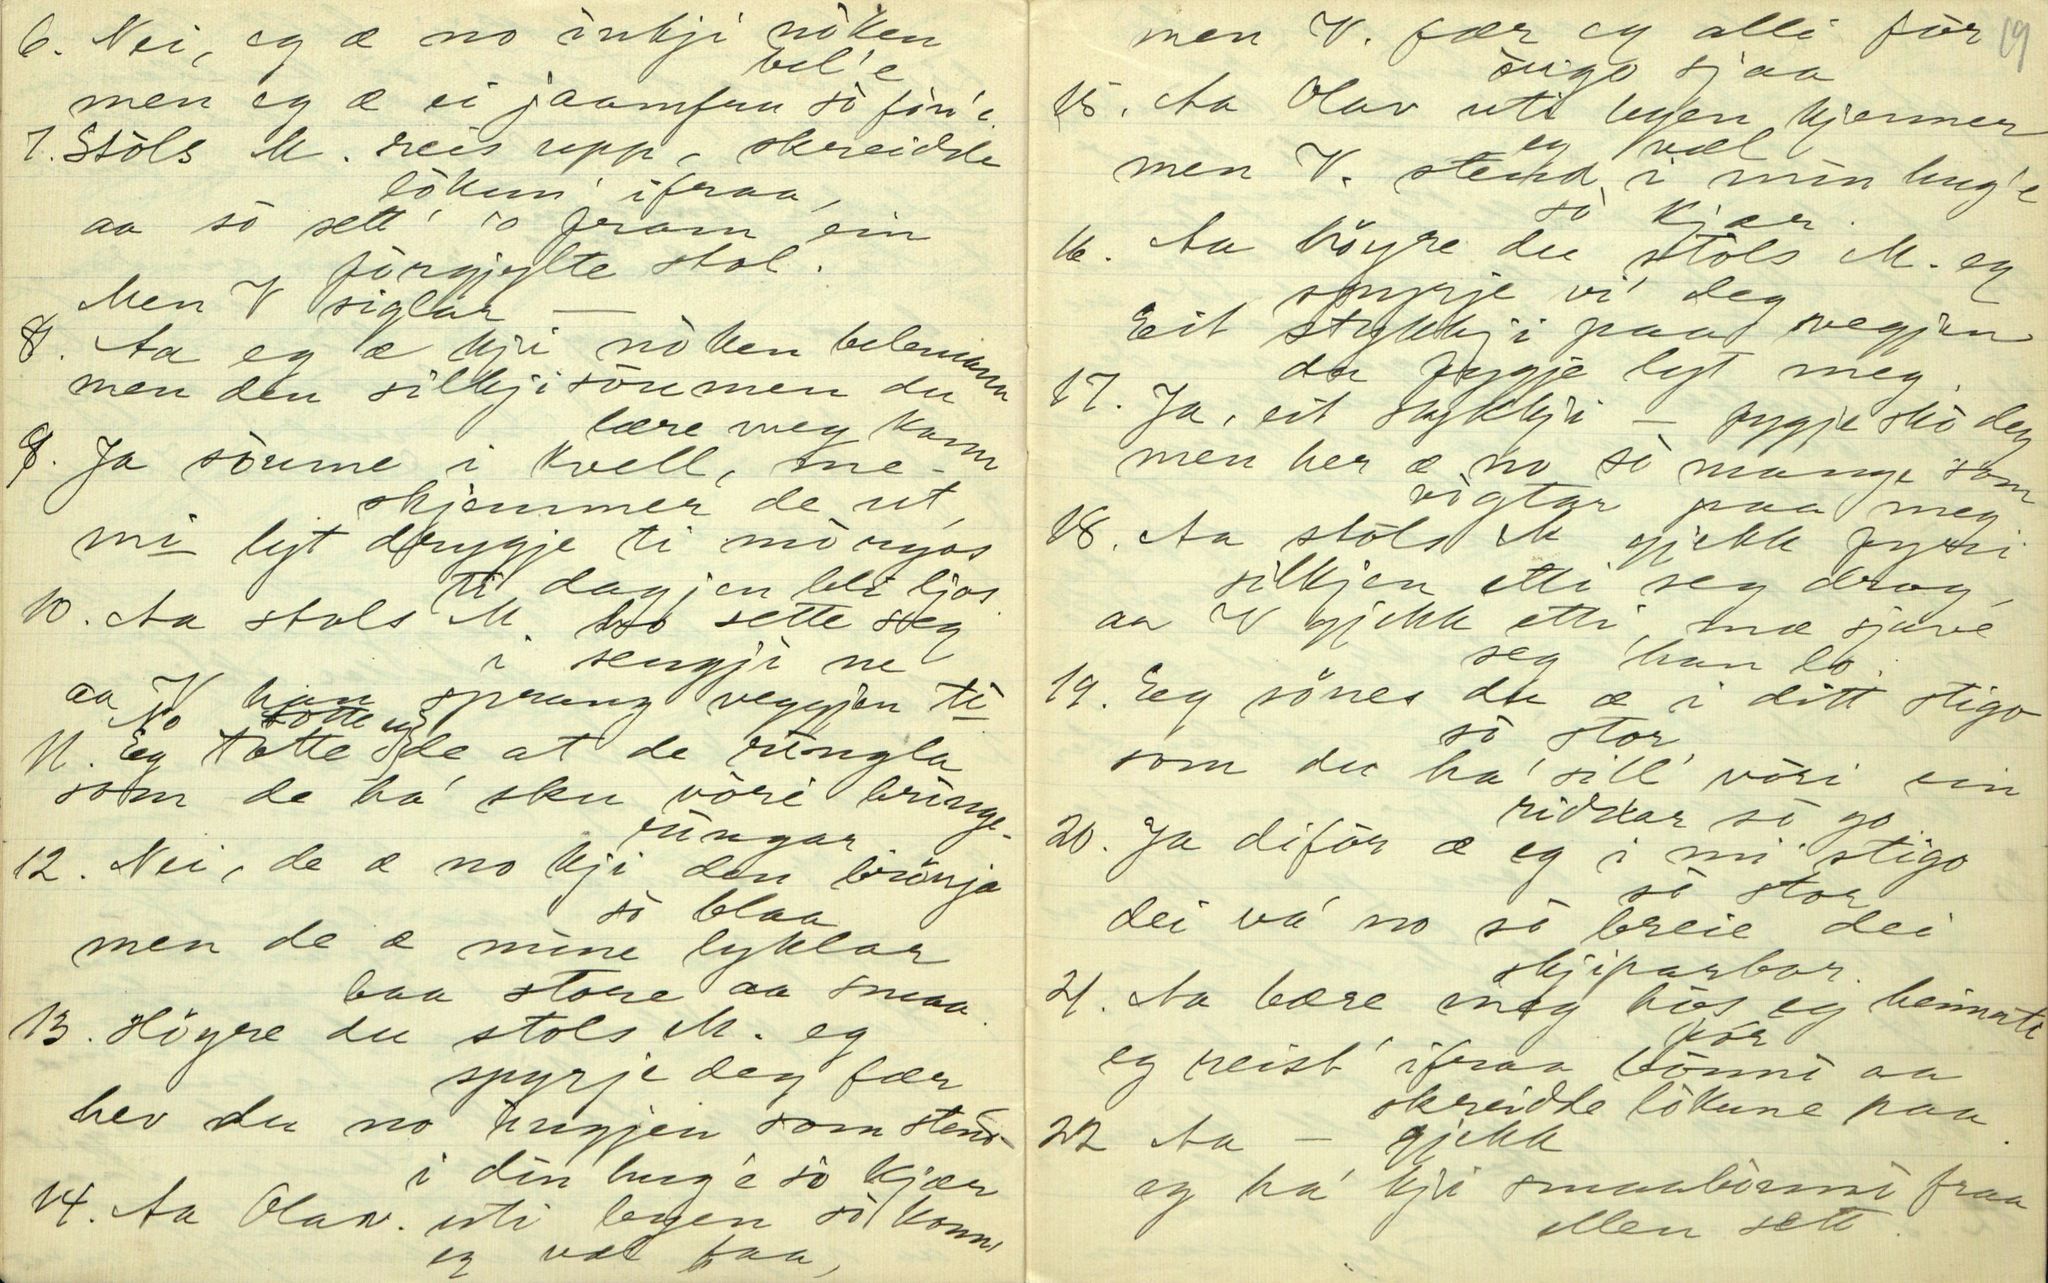 6. Nei, eg æ no inkji nòken
bel'e
men eg æ ei jaamfru sò fin'e.
7. Stòls M. reis upp, skreidde
lòkun' ifraa,
aa sò sett' 'o fram ein
fòrgjylte stol.
Men V siglar —
8. Aa eg æ kji nòken belemann
men den silkjisòumen du
lære meg kann
9. Ja sòume i kvell, me-
skjemmer de ut,
mi lyt drygje ti mòrgos
ti dagjen bli ljos.
10. Aa stols M. ho sette seg
i sengji ne
aa V han sprang veggjen ti
No totte eg
11. Eg totte de at de ringla
som de ha' sku vòri bringe-
ringar
12. Nei, de æ no kji den brönja
sò blaa
men de æ mine lyklar
baa store aa smaa.
13. Höyre du stols M. eg
spyrje deg fær
hev du no ingjen som stend
i din hug'e sò kjær
14. Aa Olav. uti byen sò kann
eg væl faa,
19
men V. fær eg alli fòr
òugo sjaa
15. Aa Olav uti byen kjenner
eg væl
men V. stend i min hug'e
sò kjær.
16. Aa höyre du stòls M. eg
spyrje vi' deg
Eit stykkji paa vegjen
du fygje lyt meg.
17. Ja, eit stykkji — fygje skò deg
men her æ no sò mange som
vigtar paa meg
18. Aa stòls M gjekk fyri
silkjen etti seg drog,
aa V gjekk etti, mæ sjave
seg han lo.
19. Eg sònes du æ i ditt stigo
sò stor
som du ha' sill' vòri ein
riddar sò go
20. Ja difòr æ eg i mi stigo
sò stor
dei va' no sò breie dei
skjiparbor.
21. Aa bære meg hòs eg heimate
fòr
eg reist' ifraa bònni aa
skreidde lòkune paa.
22 Aa — gjekk
eg ha' kji smaabònni fraa
ellen sett.